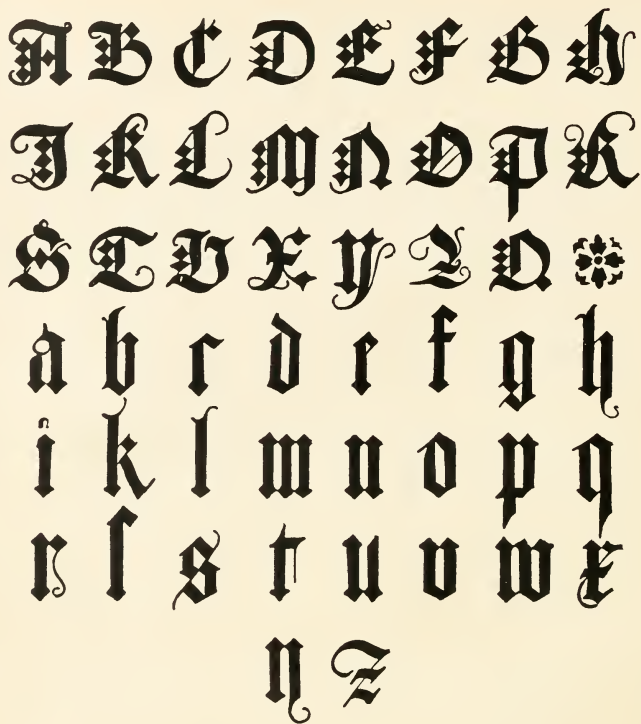 A B C D E F G H
I K L M N O P R
S T V X Y Z Q
a b c d e f g h
i k l m n o p q
r ſ s t u v w x
y z